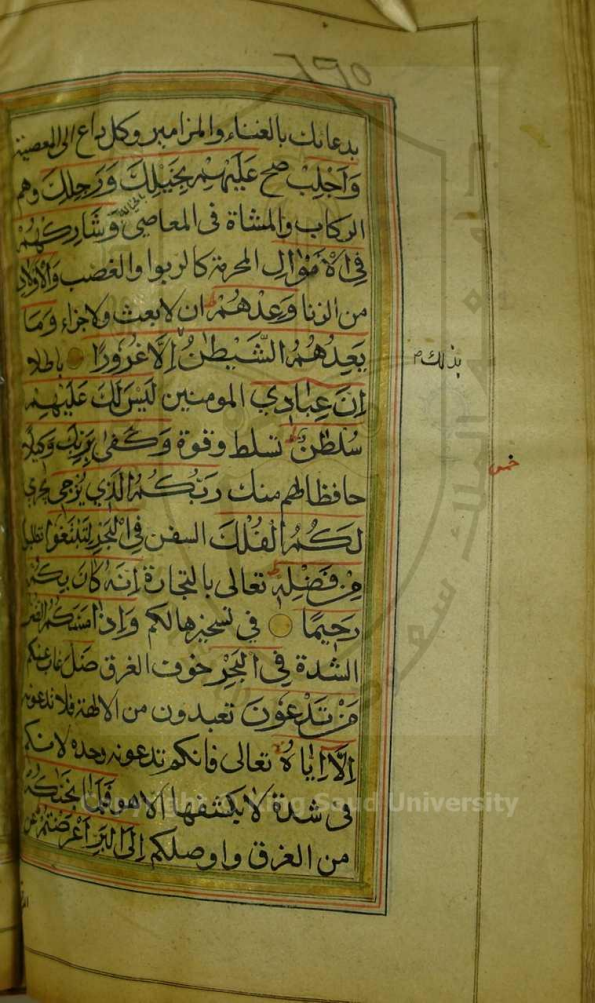 بدعائك بالغناء والمزامير وكل داع الى المعصية
وَاَجْلِبْ صح عَلَيْهِمْ بِخَيْلِكَ وَرَجِلِكَ وهم
الركاب والمشاة فى المعاصي وَشَارِكْهُمْ
فِي الْاَمْوَالِ المحرمة كالربوا والغصب وَالْاَوْلَادِ
من الزنا وَعِدْهُمْ ان لا بعث ولا جزاء وَمَا
يَعِدُهُمُ الشَّيْطٰنُ اِلَّا غُرُورًا باطلا
اِنَّ عِبَادِي المومنين لَيْسَ لَكَ عَلَيْهِمْ
سُلْطٰنٌ تسلط وقوة وَكَفٰى بِرَبِّكَ وَكِيلًا
حافظا لهم منك رَبُّكُمُ الَّذِي يُزْجِي يجرى
لَكُمُ الْفُلْكَ السفن فِي الْبَحْرِ لِتَبْتَغُوا تطلبوا
مِنْ فَضْلِهِ تعالى بالتجارة اِنَّهُ كَانَ بِكُمْ
رَحِيمًا في تسخيرها لكم وَاِذَا مَسَّكُمُ الضُّرُّ
الشدة فِي الْبَحْرِ خوف الغرق ضَلَّ غاب عنكم
مَنْ تَدْعُونَ تعبدون من الالهة فلا تدعونه
اِلَّا اِيَّاهُ تعالى فانكم تدعونه وحده لانكم
فى شدة لا يكشفها الا هو فَلَمَّا نَجّٰىكُمْ
من الغرق واوصلكم اِلَى الْبَرِّ اَعْرَضْتُمْ عن
بذلك م
Copyright © King Saud University